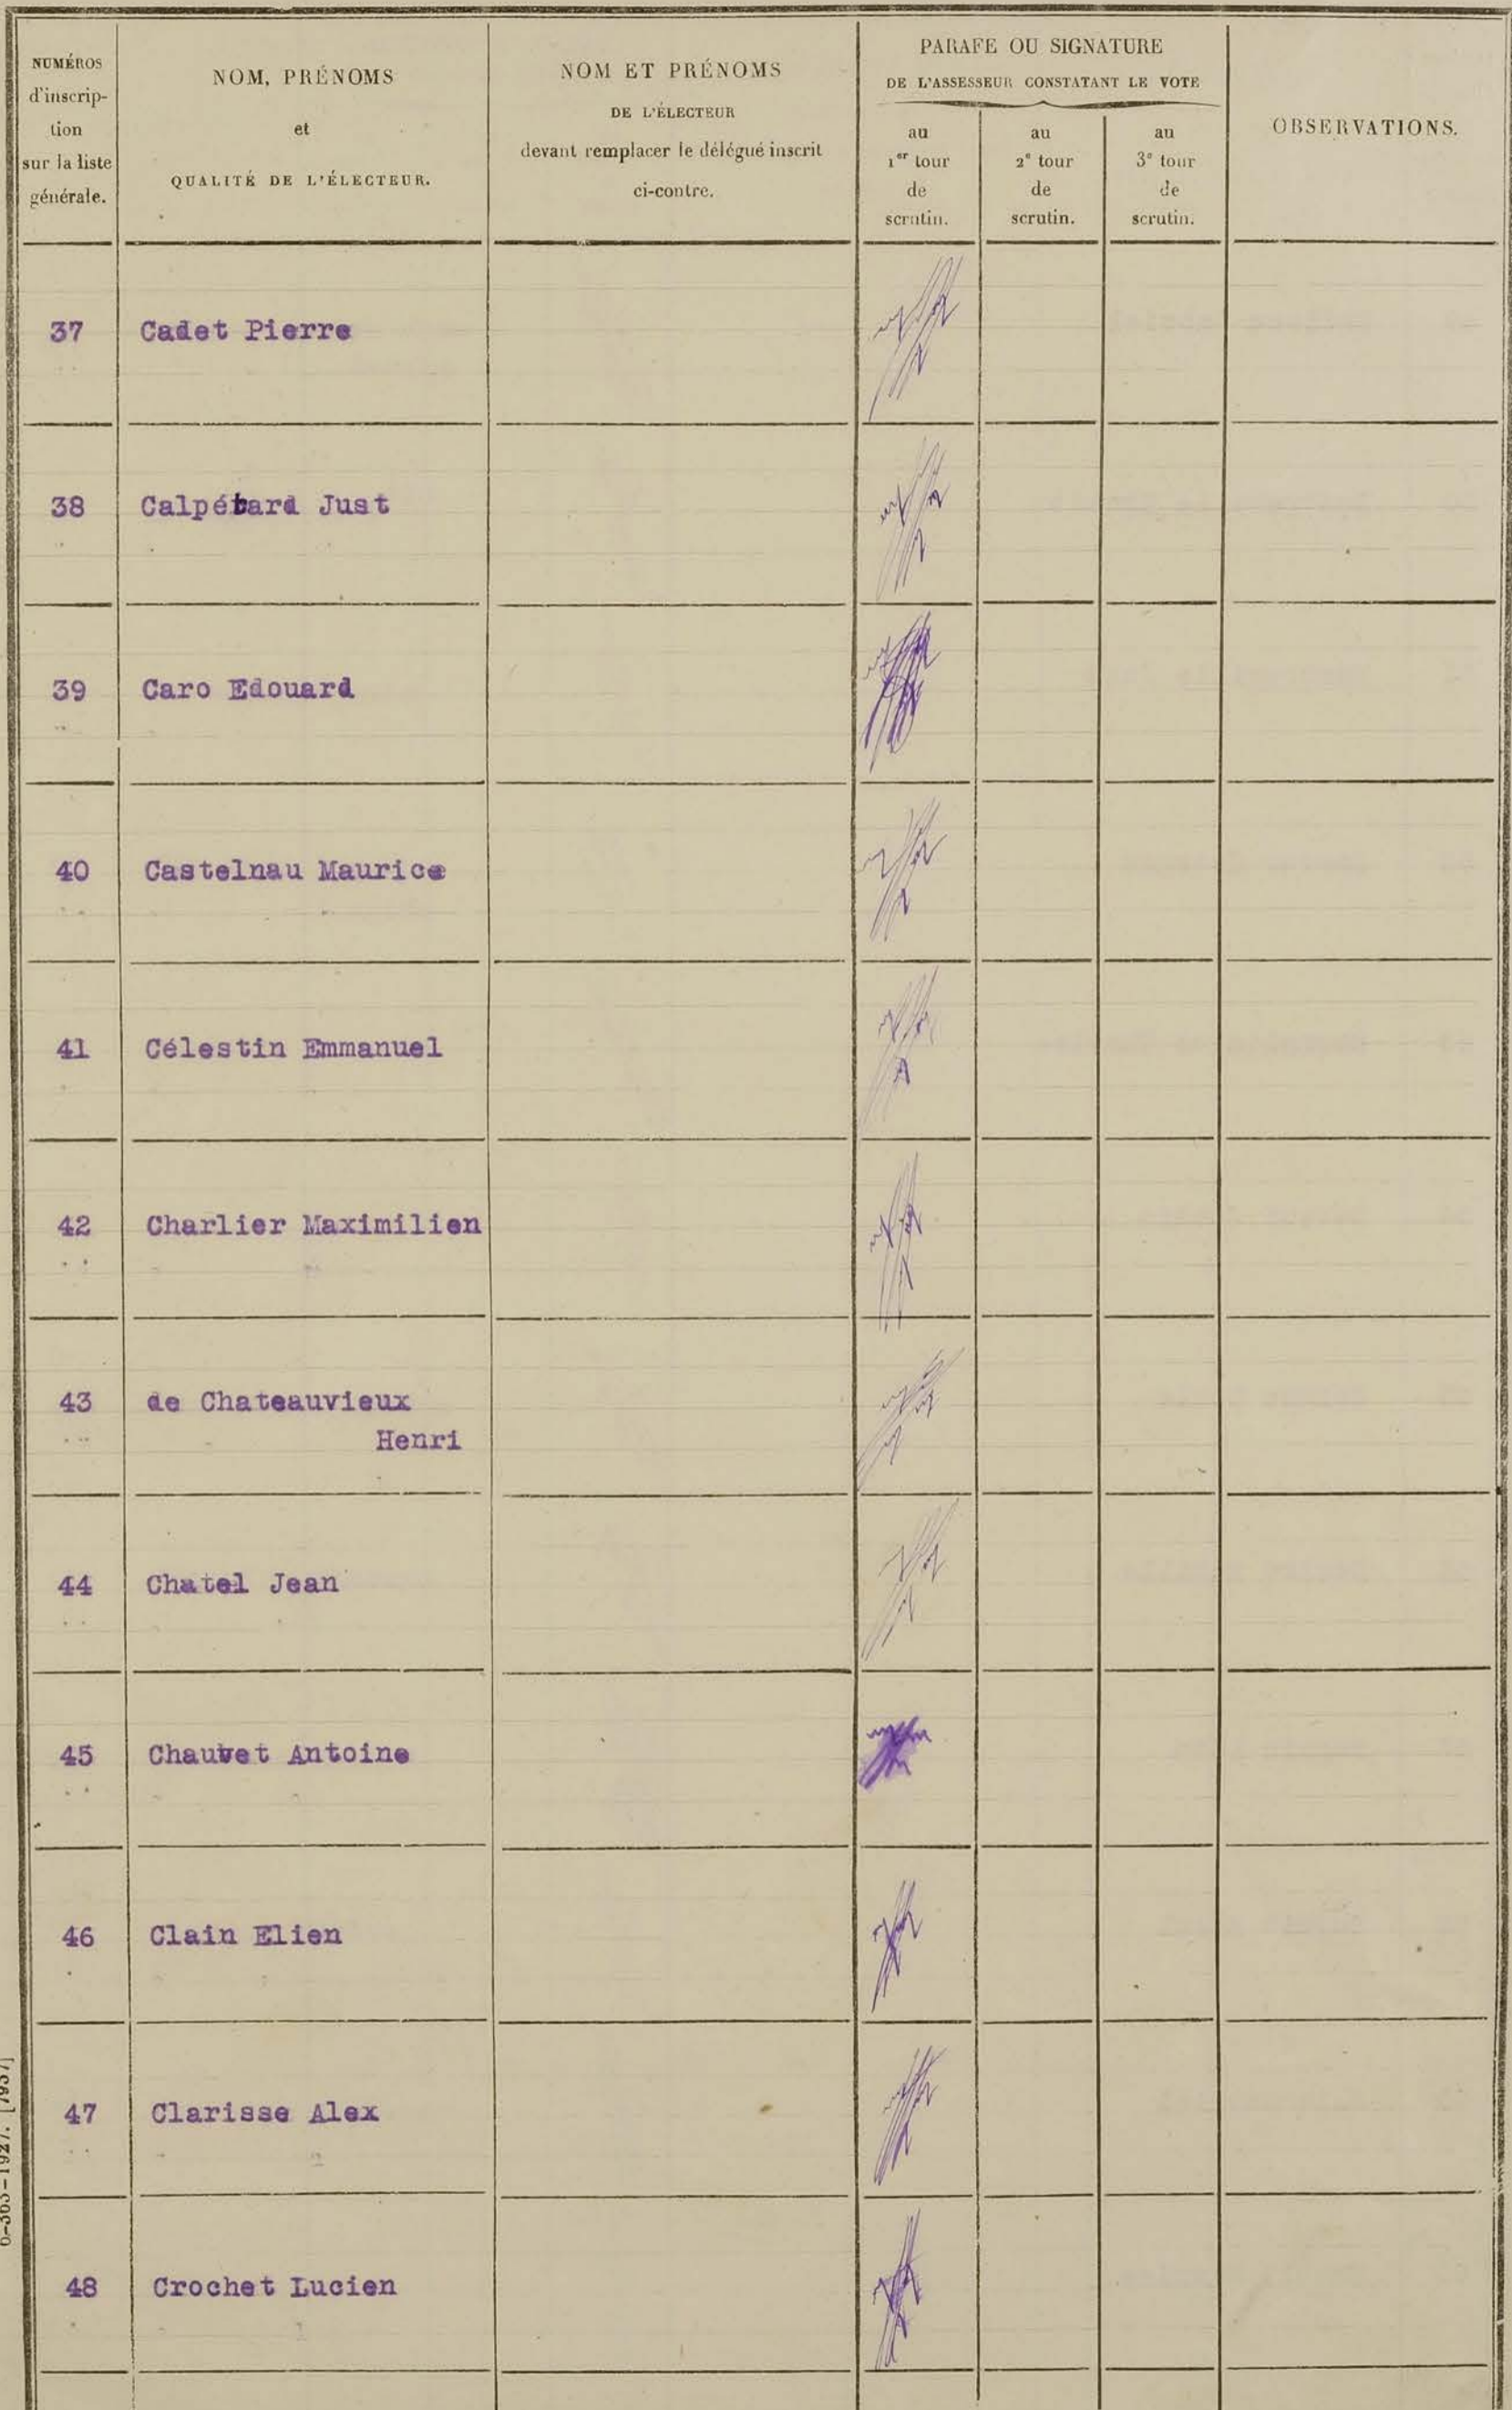 NUMÉROS
d'inscrip-
tion
sur la liste
générale.
NOM, PRÉNOMS
et
QUALITÉ DE L'ÉLECTEUR.
NOM ET PRÉNOMS
DE L'ÉLECTEUR
devant remplacer le délégué inscrit
ci-contre.
PARAFE OU SIGNATURE
DE L'ASSESSEUR CONSTATANT LE VOTE
au
1er tour
de
scrutin.
au
2e tour
de
scrutin.
au
3e tour
de
scrutin.
OBSERVATIONS.
37 Cadet Pierre
38 Just
39 Caro Edouard
40 Castelnau Maurice
41 Célestin Emmanuel
42 Charlier Maximilien
43 de Chateauvieux
Henri
44 Chatel Jean
45 Chauvet Antoine
46 Clain Elien
47 Clarisse Alex
48 Crochet Lucien